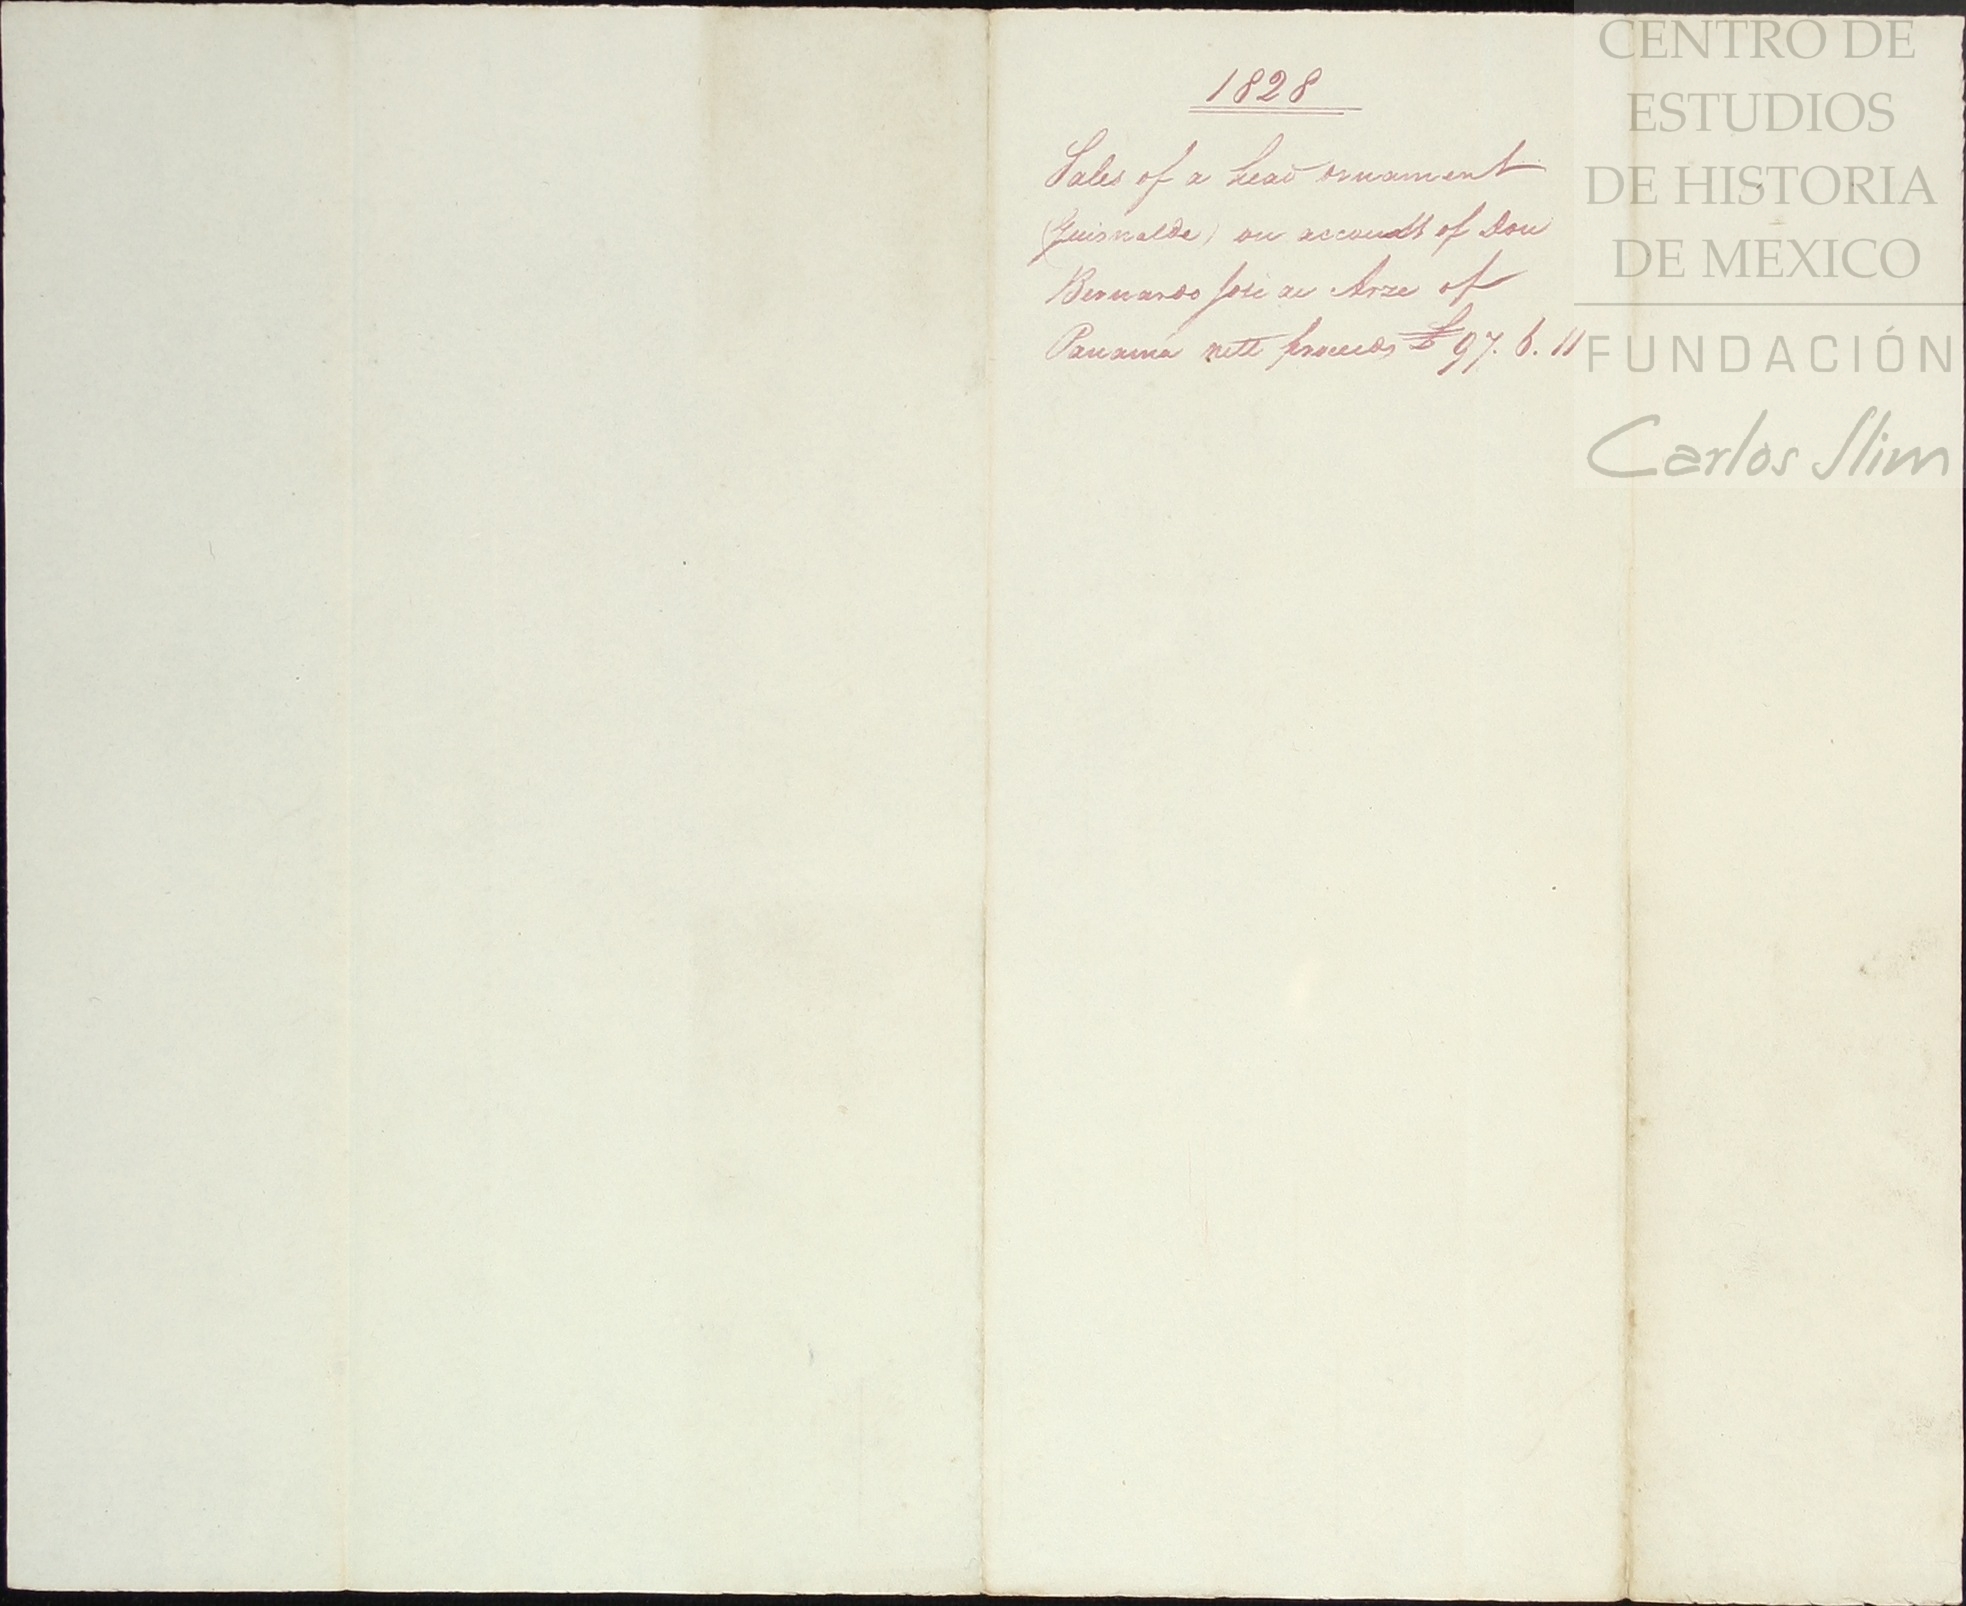 1828
Sales of a head ornament
(Guirnalde) on account of Don
Bernardo José de Arze of
Panama nett proceeds £97. 6. 11
CENTRO DE
ESTUDIOS
DE HISTORIA
DE MÉXICO
FUNDACIÓN
Carlos Slim